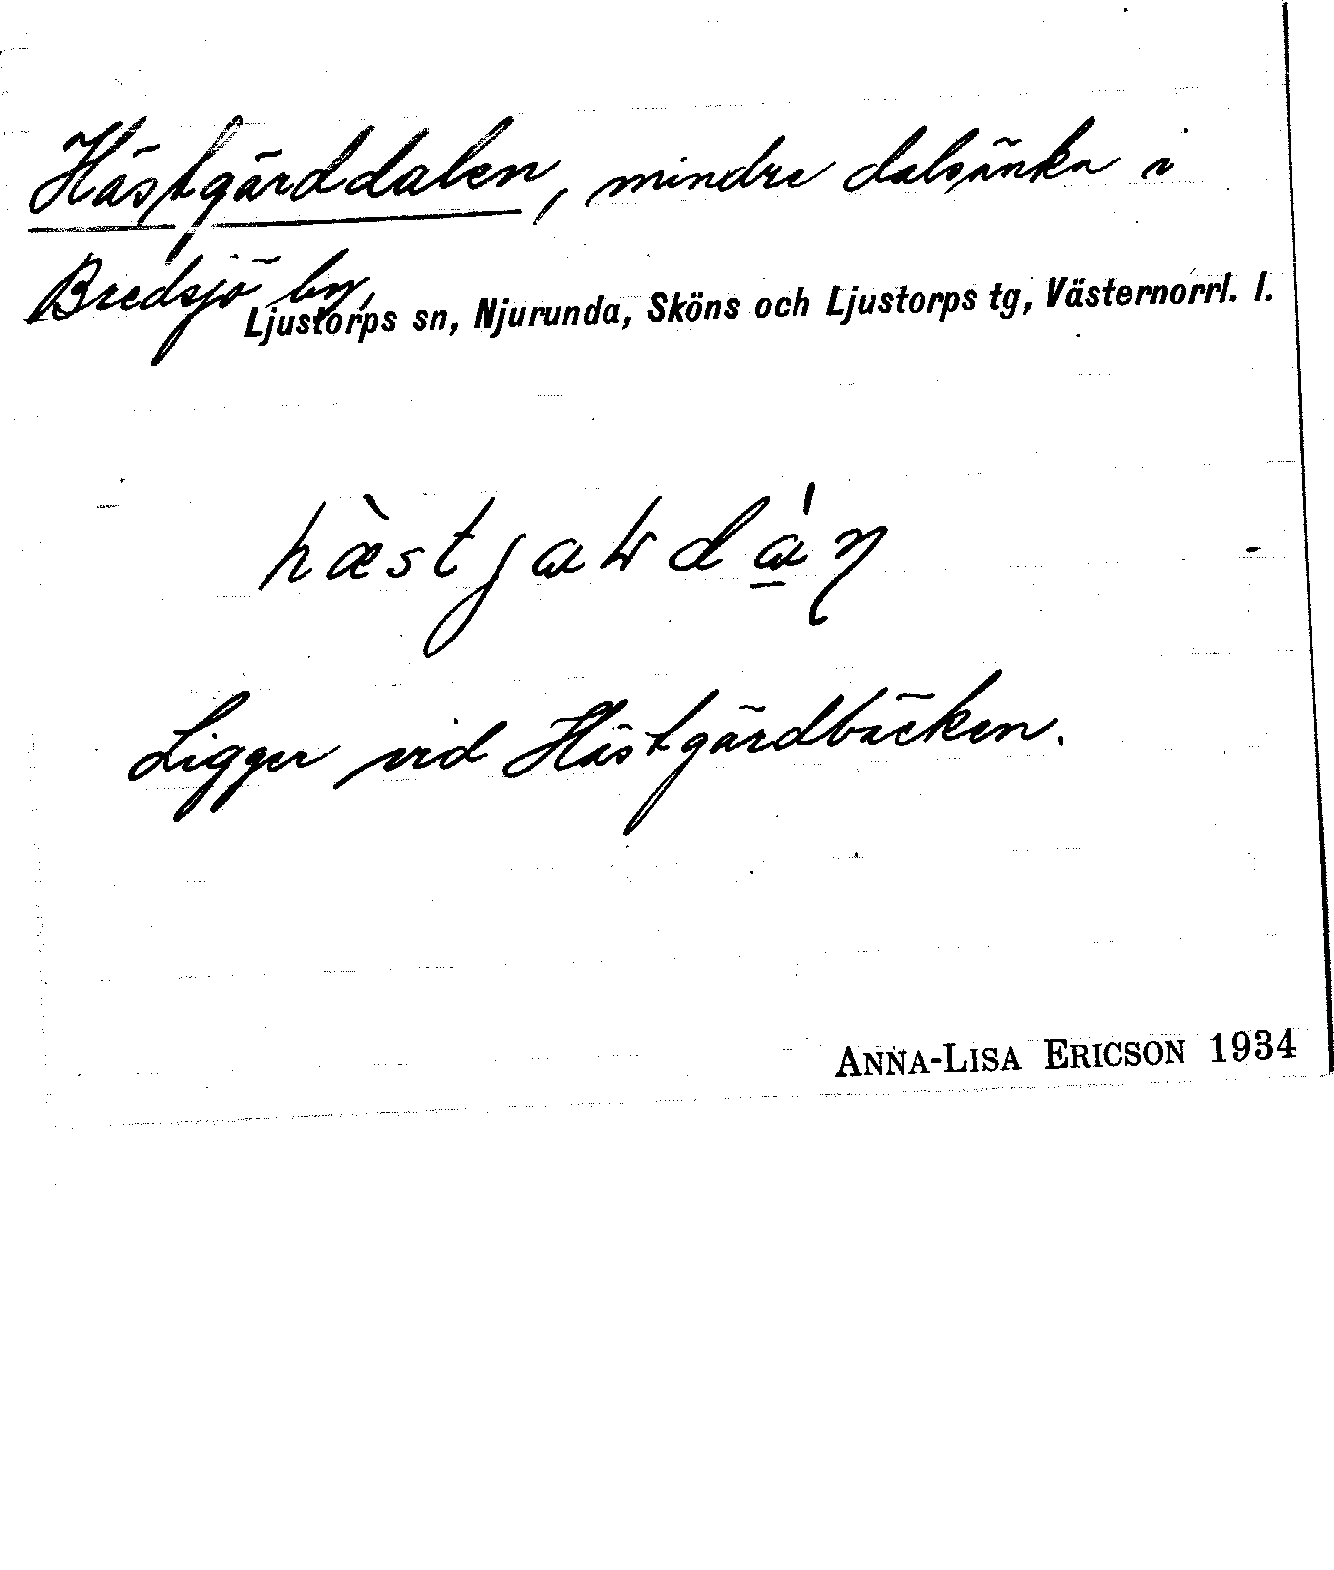 Hästgärddalen, mindre dalsänka i
Bredsjö by,
Ljustorps sn, Njurunda, Sköns och Ljustorps tg, Västernorrl. l.
Ligger vid Hästgärdbäcken.
ANNA-LISA ERICSON 1934